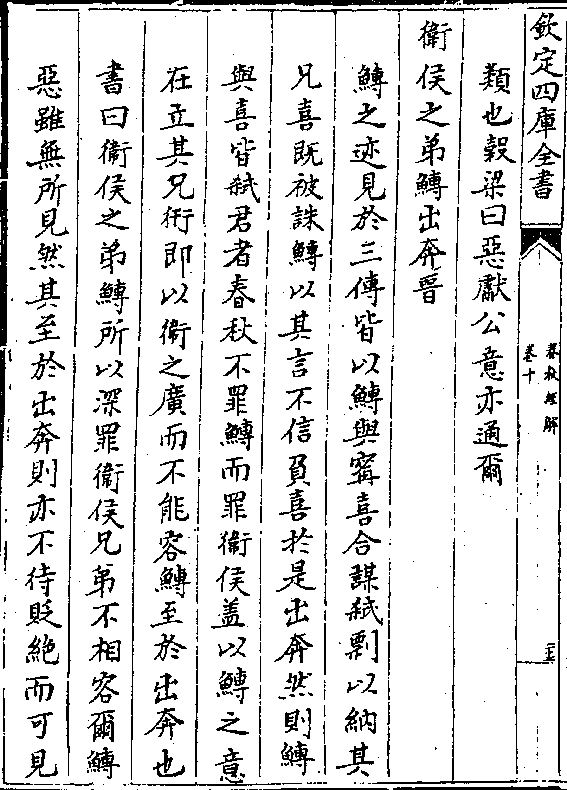 欽定四庫全書
春秋經解
卷十
二十五
類也穀梁曰惡獻公意亦通爾
衛侯之弟鱄出奔晉
鱄之迹見於三傳皆以鱄與甯喜合謀弑剽以納其
兄喜既被誅鱄以其言不信負喜於是出奔然則鱄
與喜皆弑君者春秋不罪鱄而罪衛侯盖以鱄之意
在立其兄衎即以衛之廣而不能容鱄至於出奔也
書曰衛侯之弟鱄所以深罪衛侯兄弟不相容爾鱄
惡雖無所見然其至於出奔則亦不待貶絶而可見